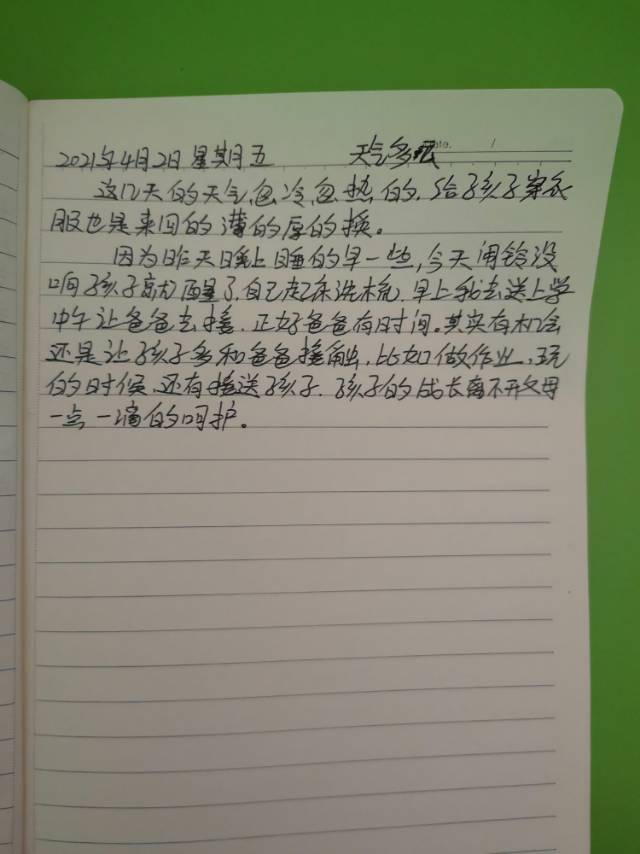 2021年4月2日 星期五 天气多云 Date. /
这几天的天气忽冷忽热的,给孩子穿衣
服也是来回的薄的厚的换。
因为昨天晚上睡的早一些,今天闹铃没
响孩子就醒了,自己起床洗梳,早上我去送上学
中午让爸爸去接,正好爸爸有时间。其实有机会
还是让孩子多和爸爸接触,比如做作业、玩
的时候,还有接送孩子,孩子的成长离不开父母
一点一滴的呵护。